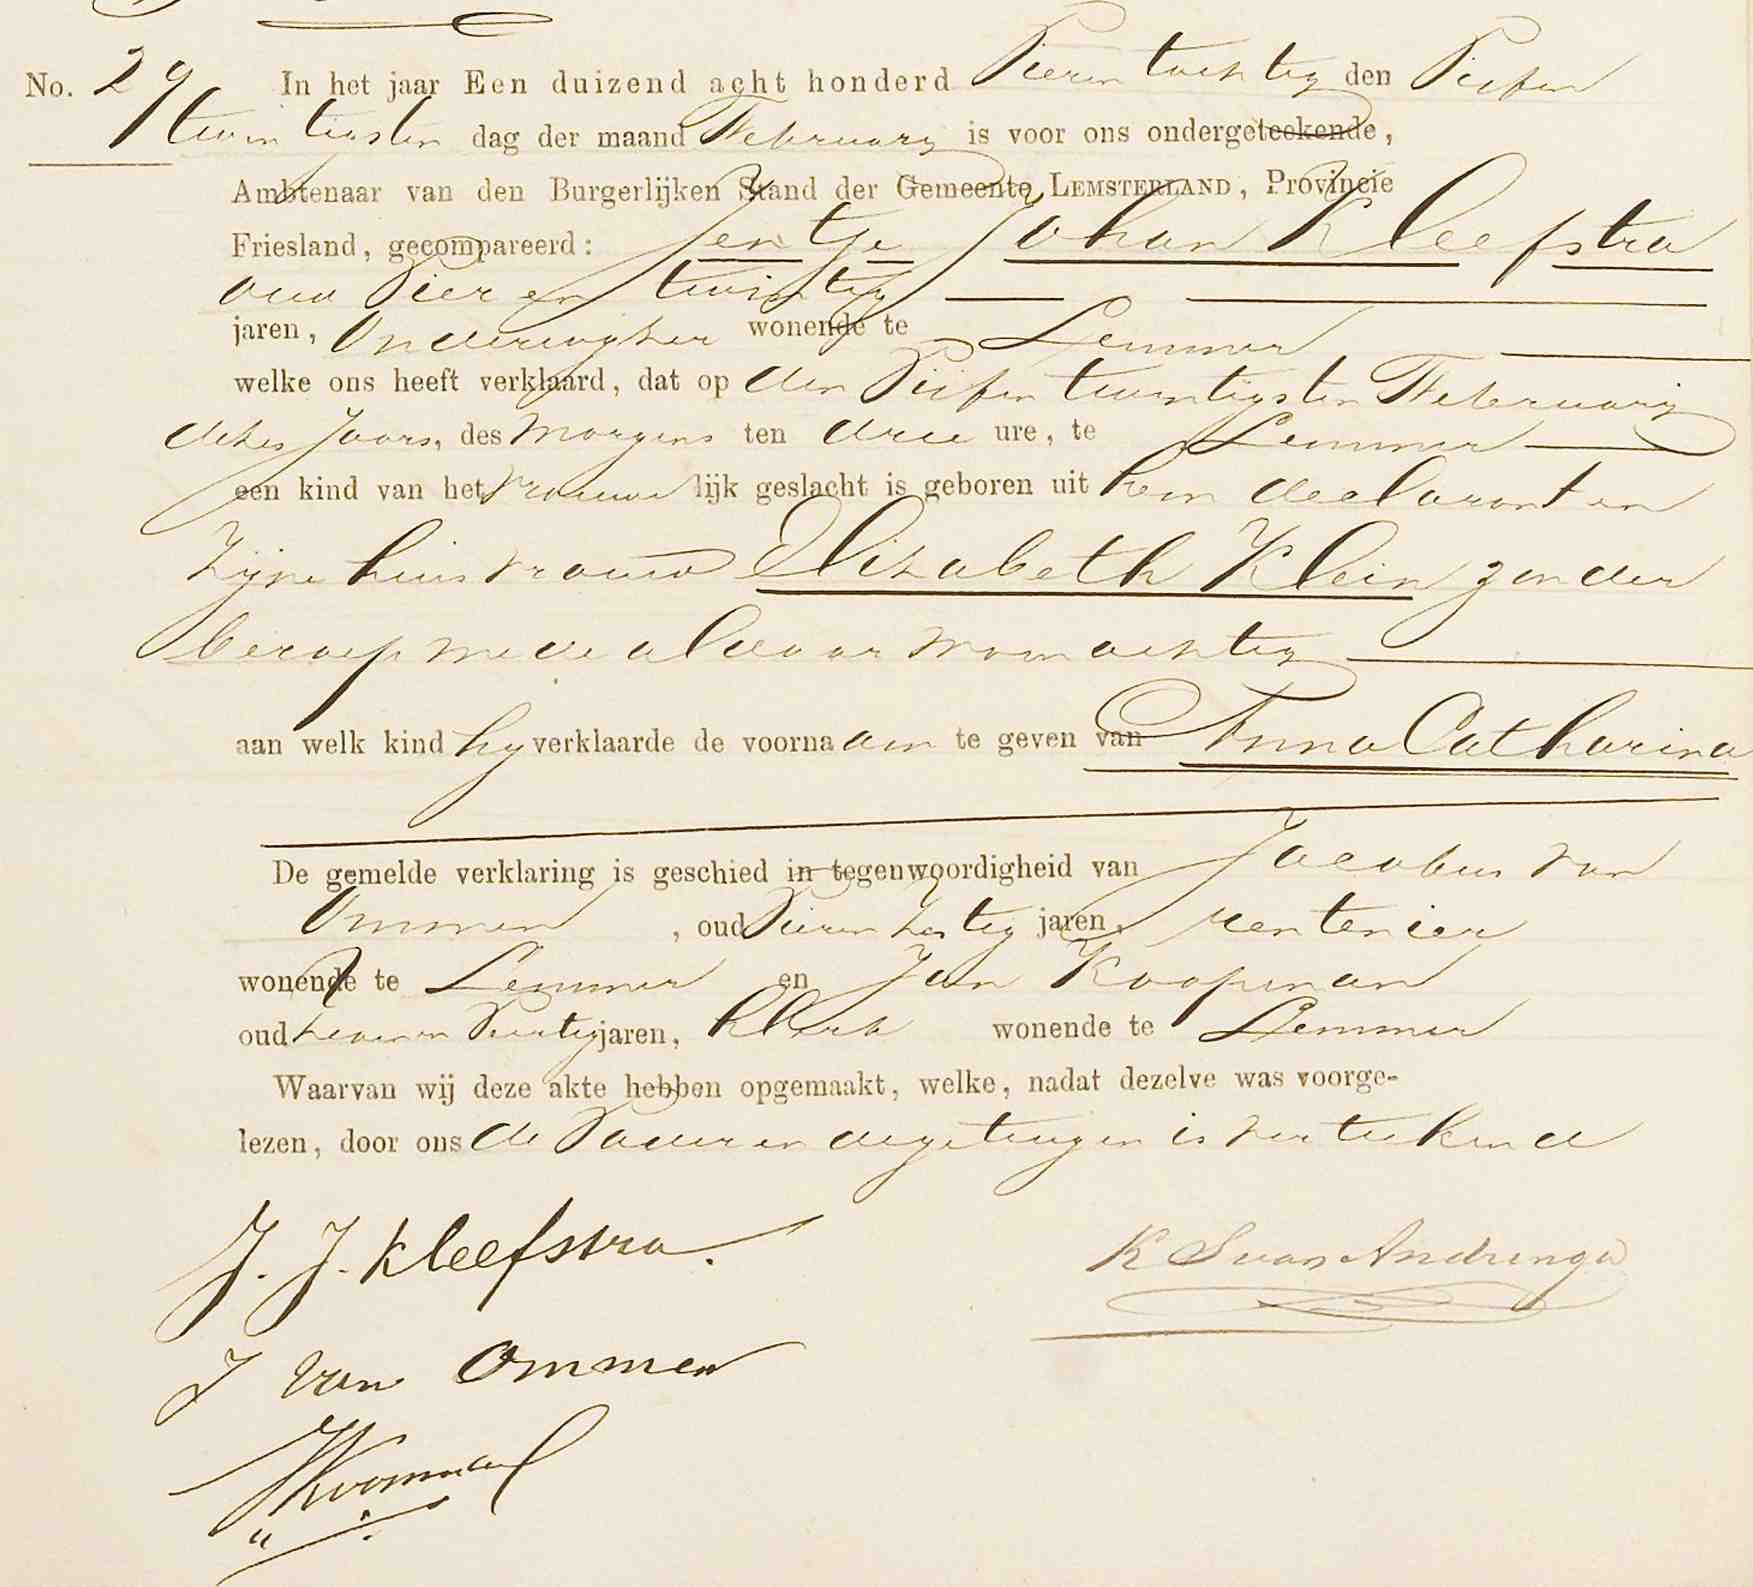 No. 29 In het jaar Een duizend acht honderd Vierentachtig den Vijfen
twintigsten dag der maand February is voor ons ondergeteekende,
Ambtenaar van den Burgerlijken Stand der Gemeente LEMSTERLAND, Provincie
Friesland, gecompareerd: Jentje Johan Kleefstra
oud Vier en twintig
jaren, Onderwijzer wonende te Lemmer
welke ons heeft verklaard, dat op den Vijfentwintigsten February
dezes Jaars, des Morgens ten drie ure, te Lemmer
een kind van het vrouwelijk geslacht is geboren uit hem declarant en
zijne huisvrouw Elizabeth Klein zonder
beroep mede aldaar woonachtig
aan welk kind hij verklaarde de voornaam te geven van Anna Catharina
De gemelde verklaring is geschied in tegenwoordigheid van Jacobus van
Ommen, oud Vierenzestig jaren, rentenier
wonende te Lemmer en Jan Koopman
oud zevenen Veertig jaren, klerk wonende te Lemmer
Waarvan wij deze akte hebben opgemaakt, welke, nadat dezelve was voorge-
lezen, door ons de Vader en de getuigen is verteekend
J. J. Kleefstra.
K S van Andringa
J van Ommen
JKoopman